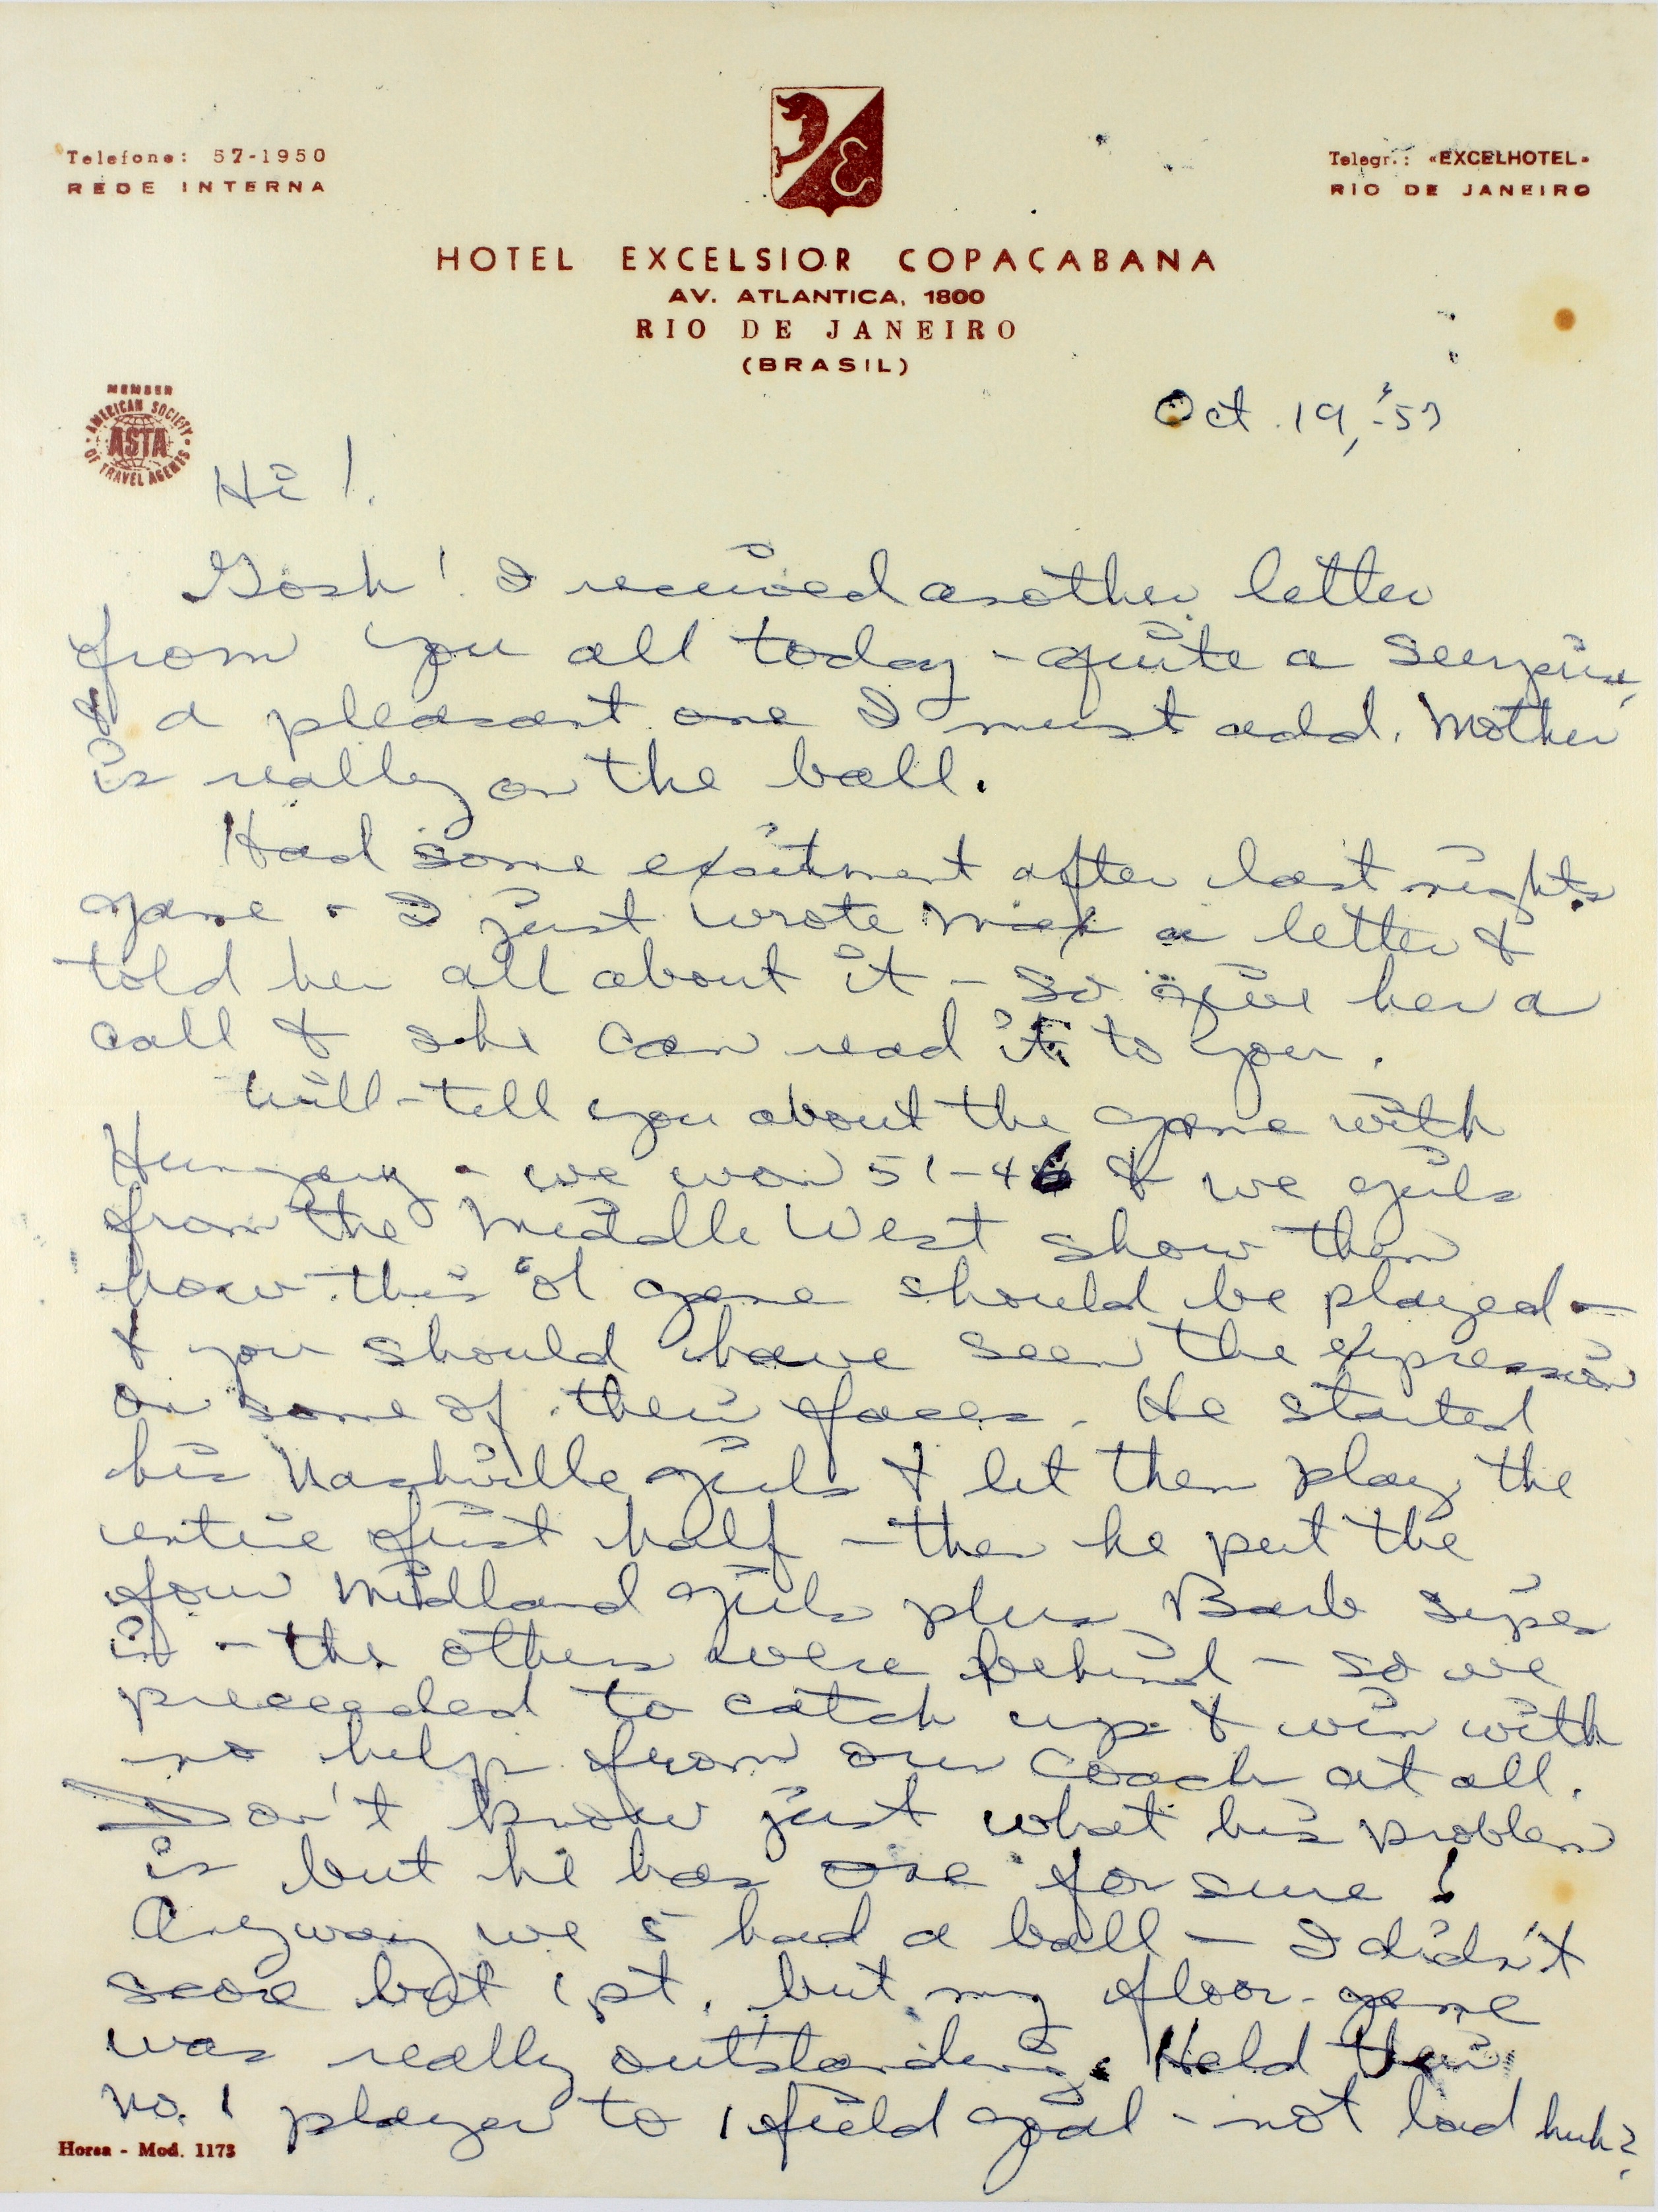 Telefone: 57-1950
REDE INTERNA
Telegr.: «EXCELHOTEL»
RIO DE JANEIRO
HOTEL EXCELSIOR COPACABANA
AV. ATLANTICA, 1800
RIO DE JANEIRO
(BRASIL)
MEMBER
AMERICAN SOCIETY
ASTA
OF TRAVEL AGENTS
Oct. 19, '57
Hi!
Gosh! I received another letter
from you all today - quite a surprise,
& a pleasant one I must add. Mother
is really on the ball.
Had some exsitment after last nights
game - I just wrote a letter &
told her all about it - so give her a
call & she can read it to you.
Will tell you about the game with
Hungary - we won 51-46 & we girls
from the Middle West show them
how this 'ol game should be played -
& you should have seen the expression
on some of their faces. He started
his Nashville girls & let them play the
entire first half - then he put the
four Midland girls plus Barb Sipes
in - the others were behind - so we
preceeded to catch up & win with
no help from our Coach at all.
Don't know just what his problem
is but he has one for sure!
Anyway we 5 had a ball - I didn't
score but 1 pt. but my floor-game
was really outstanding. Held their
No. 1 player to 1 field goal - not bad huh?
Horsa - Mod. 1173